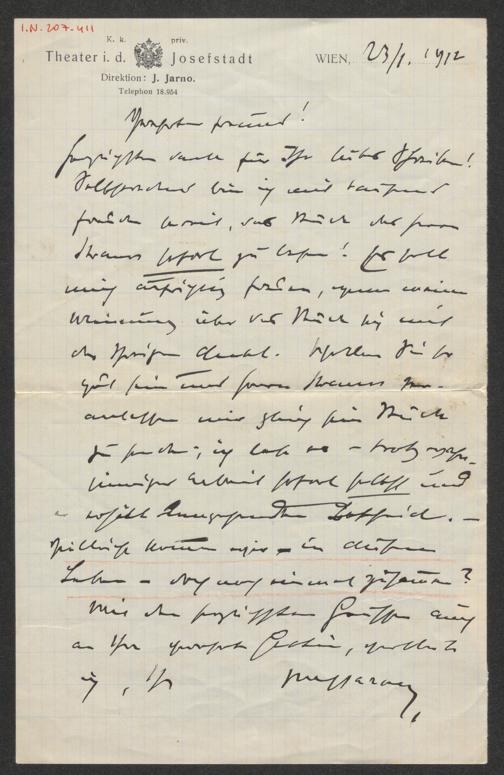 I.N. 207.411
K. k. priv.
Theater i. d. Josefstadt
Direktion: J. Jarno.
Telephon 18.954
WIEN, 23/1. 1912
Verehrter Freund!
Herzlichsten Dank für Ihr liebes Schreiben!
Selbstredend bin ich mit tausend
Freuden bereit, das Stück des Herrn
Strauss sofort zu lesen! Es soll
mich aufrichtig freuen, wenn meine
Meinung über das Stück sich mit
der Ihrigen deckt. Wollen Sie so
gut sein und Herrn Strauss ver-
anlassen mir gleich sein Stück
zu senden, ich lese es – trotz
Arbeit sofort selbst und
Bescheid. –
Vielleicht kommen wir – in diesem
Leben – doch noch einmal zusammen?
Mit den herzlichsten Grüssen auch
an Ihre verehrte Gattin,
ich, Ihr Jos Jarno